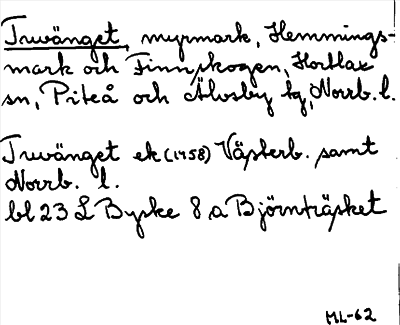 Truvänget, myrmark, Hemmings-
mark och Finnskogen, Hortlax
sn, Piteå och Älvsby tg, Norrb. l.
Truvänget ek (1958) Västerb. samt
Norrb. l.
bl 23 L Byske 8 a Björnträsket
ML-62